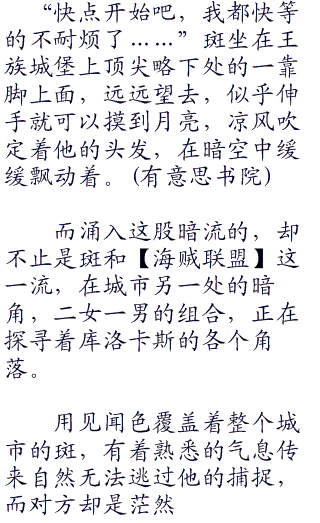 “快点开始吧，我都快等
的不耐烦了……”斑坐在王
族城堡上顶尖略下处的一靠
脚上面，远远望去，似乎伸
手就可以摸到月亮，凉风吹
定着他的头发，在暗空中缓
缓飘动着。(有意思书院)
而涌入这股暗流的，却
不止是斑和【海贼联盟】这
一流，在城市另一处的暗
角，二女一男的组合，正在
探寻着库洛卡斯的各个角
落。
用见闻色覆盖着整个城
市的斑，有着熟悉的气息传
来自然无法逃过他的捕捉，
而对方却是茫然